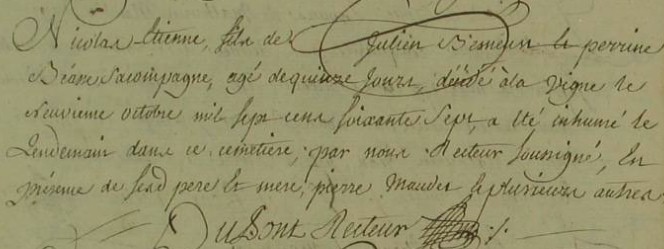 Nicolas Etienne, fils de Julien et perrine
sa compagne, agé de quinze Jours, décédé à la vigne le
Neuvieme octobre mil sept cens soixante Sept, a été inhumé le
Lendemain dans ce cemetière, par nous Recteur soussigné, En
présence de sesd pere et mere, pierre Mauder et plusieurs autres.
DuPont Recteur